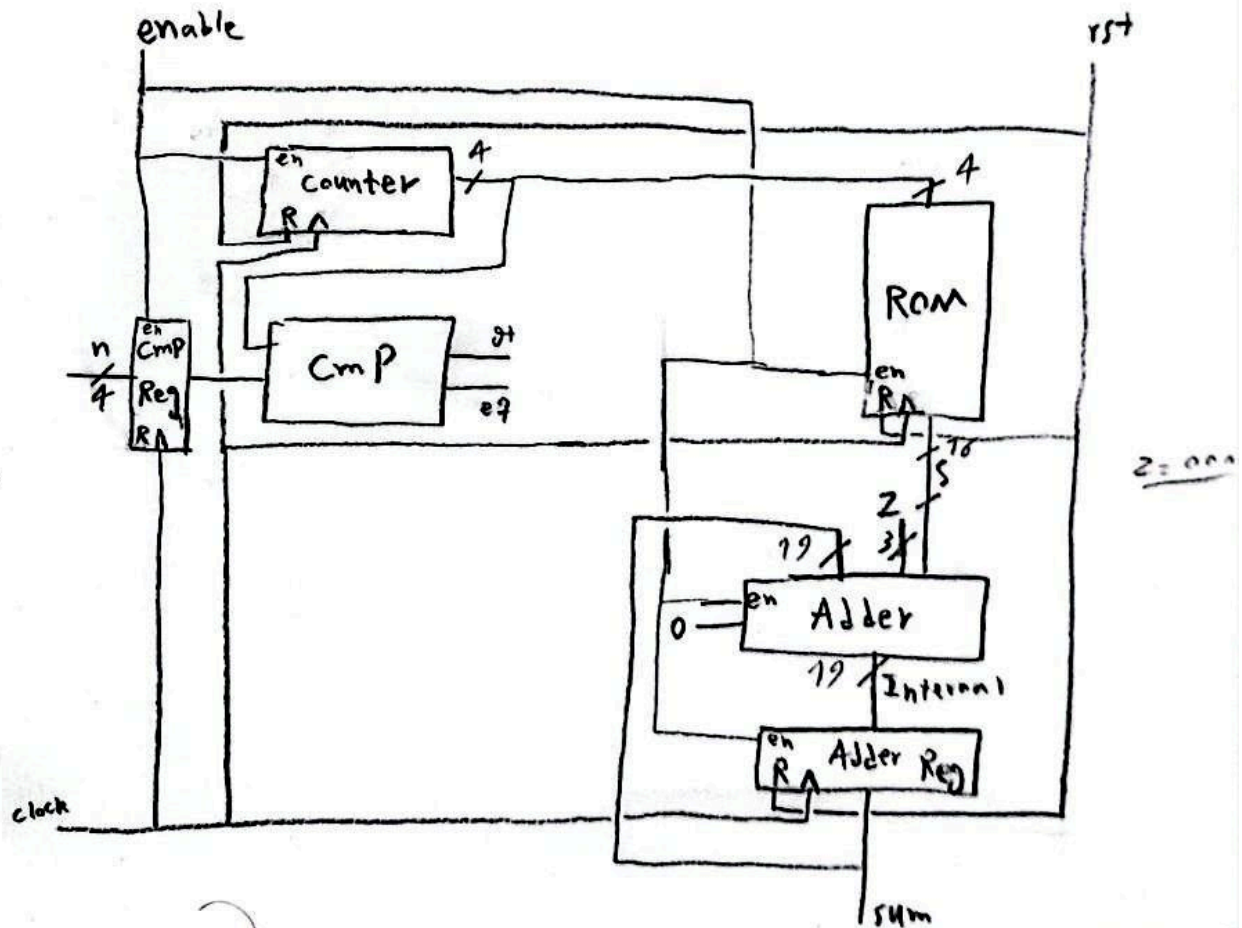 enable
rst
en
counter
R
4
4
ROM
en
R
n
4
en
Cmp
Reg
R
Cmp
gt
eq
16
S
Z
3
19
Z = 000
en
0
Adder
19
Internal
en
Adder Reg
R
clock
sum